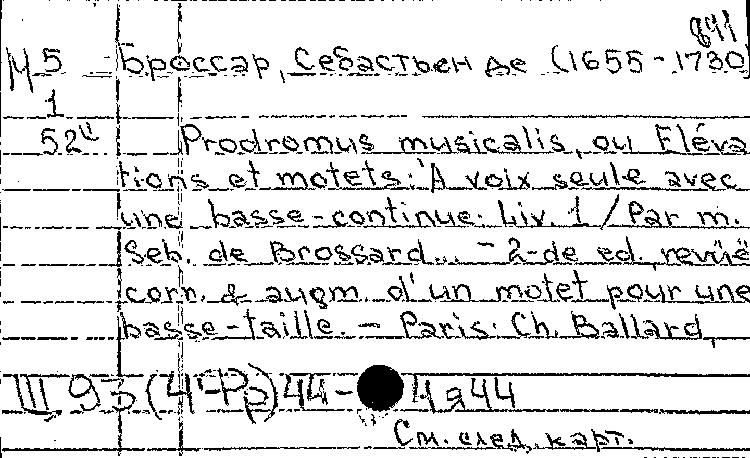 841
М 5 Броссар, Себастьен де (1655-1730
1
52 Prodromus musicalis, ou Eléva
tions et motets: A voix seule avec
une basse-continue. Liv. 1 / Par m.
Seb. de Brossard... - 2-de ed., revüe
corr. & augm. d'un motet pour une
basse-taille. - Paris: Ch. Ballard,
III 93 44-
См. след. карт.